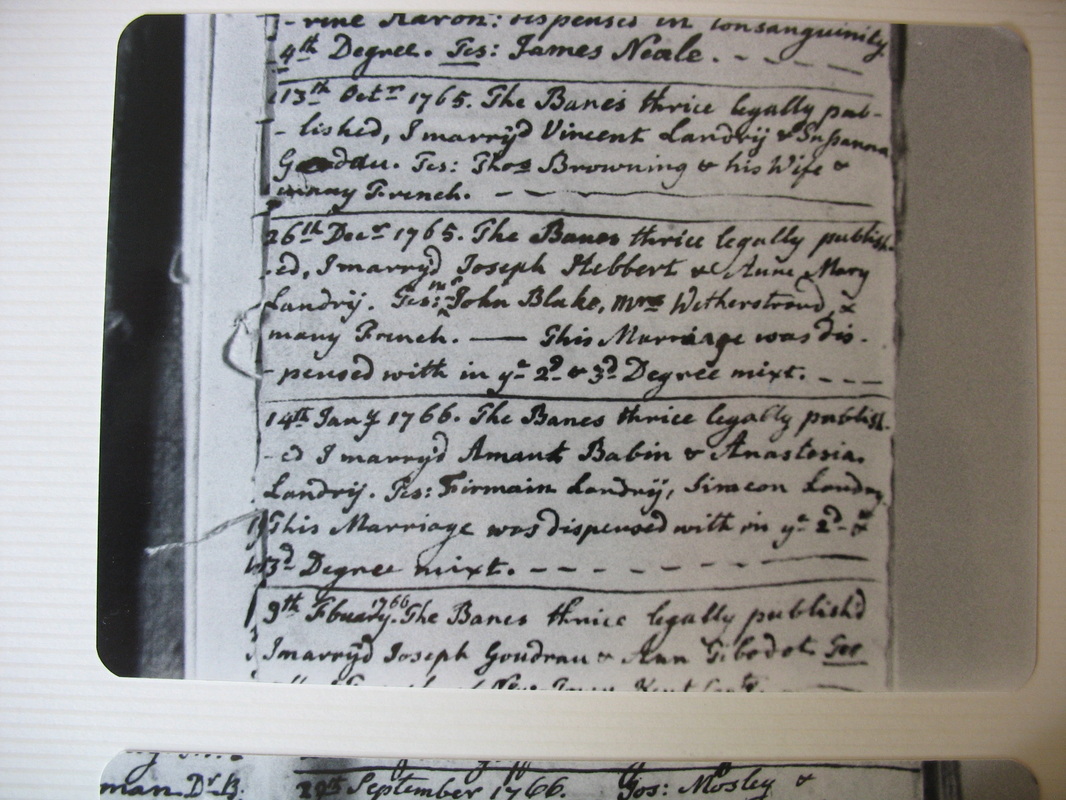 -rine Aaron: dispensed in Consanguinity
4th Degree. Tes: James Neale. - - - -
13th Octr 1765. The Banes thrice legally pub-
- lished, I marryd Vincent Landrij & Susanna
Tes: Thos Browning & his Wife &
many French. - - -
26th Decr 1765. The Banes thrice legally publish-
-ed, I marryd Joseph Hebbert & Anne Mary
Landrij. Tes: Mr John Blake, Mrs Wetherstrand, &
many French. — This Marriage was dis-
- pensed with in ye 2d & 3d Degree mixt. - - -
14th Jany 1766. The Banes thrice legally publish-
-ed I marryd Amant Babin & Anastasia
Landrij. Tes: Firmain Landrij, Simeon Landry
This Marriage was dispensed with in ye 2d &
3d Degree mixt. - - - - -
9th Fbuary 1766. The Banes thrice legally publishd
I marryd Joseph Goudrau & Ann Tibodot Tes
man Dr B. 29th September 1766. Jos: Mosley &